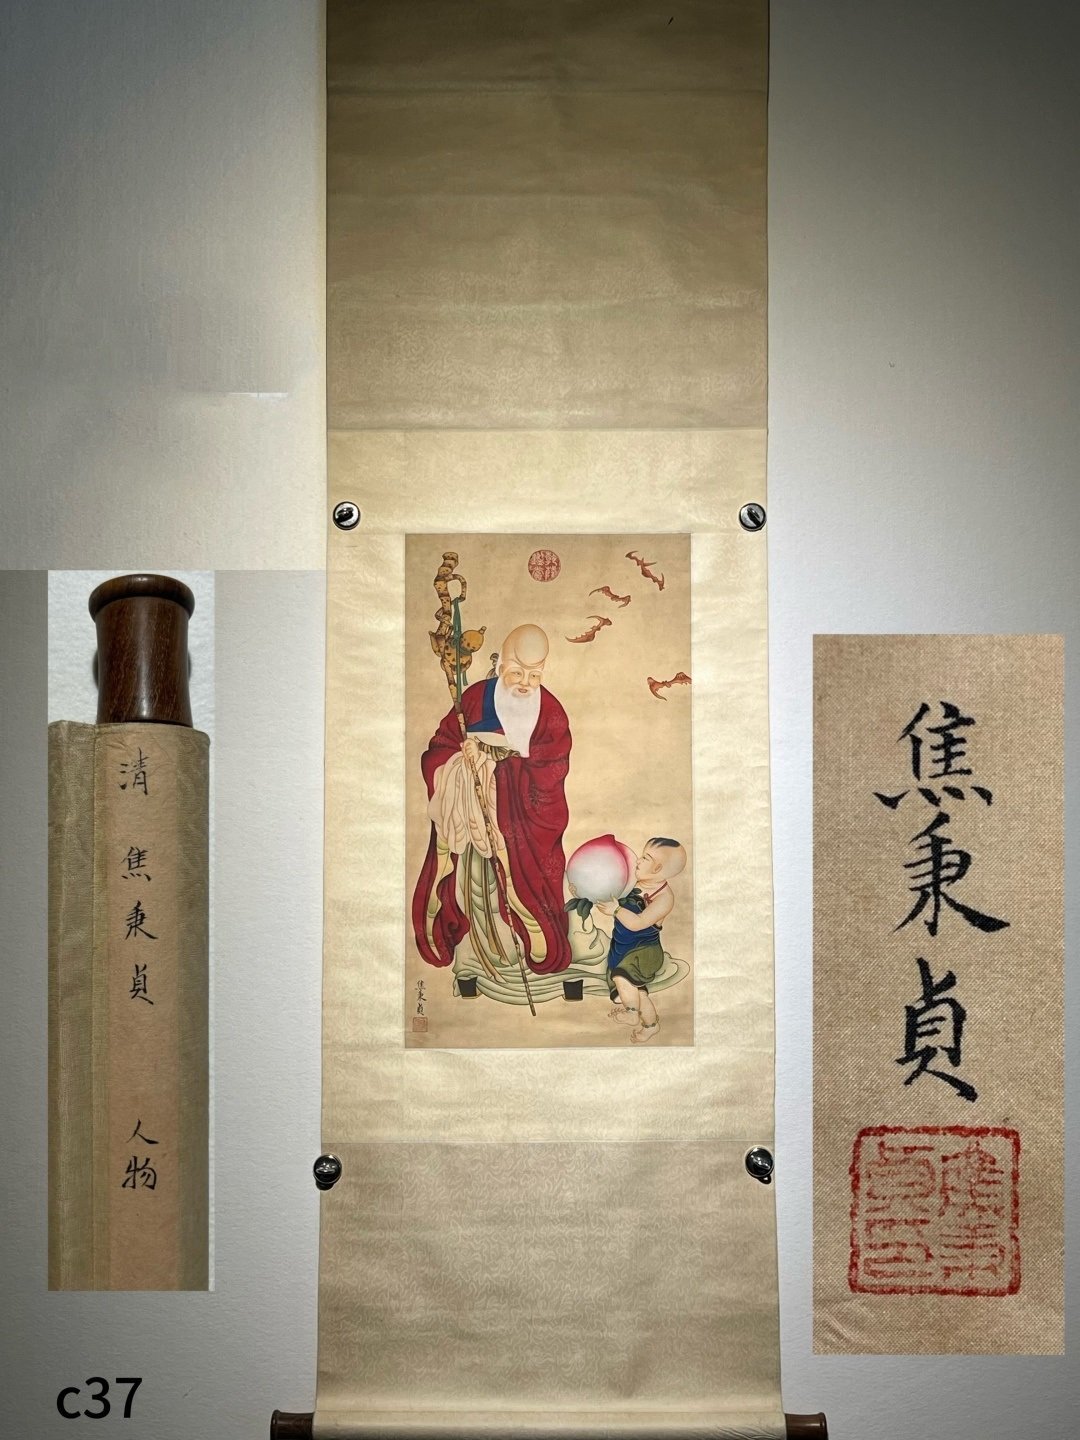 清焦秉貞人物
焦秉貞
焦秉貞
焦秉貞印
c37